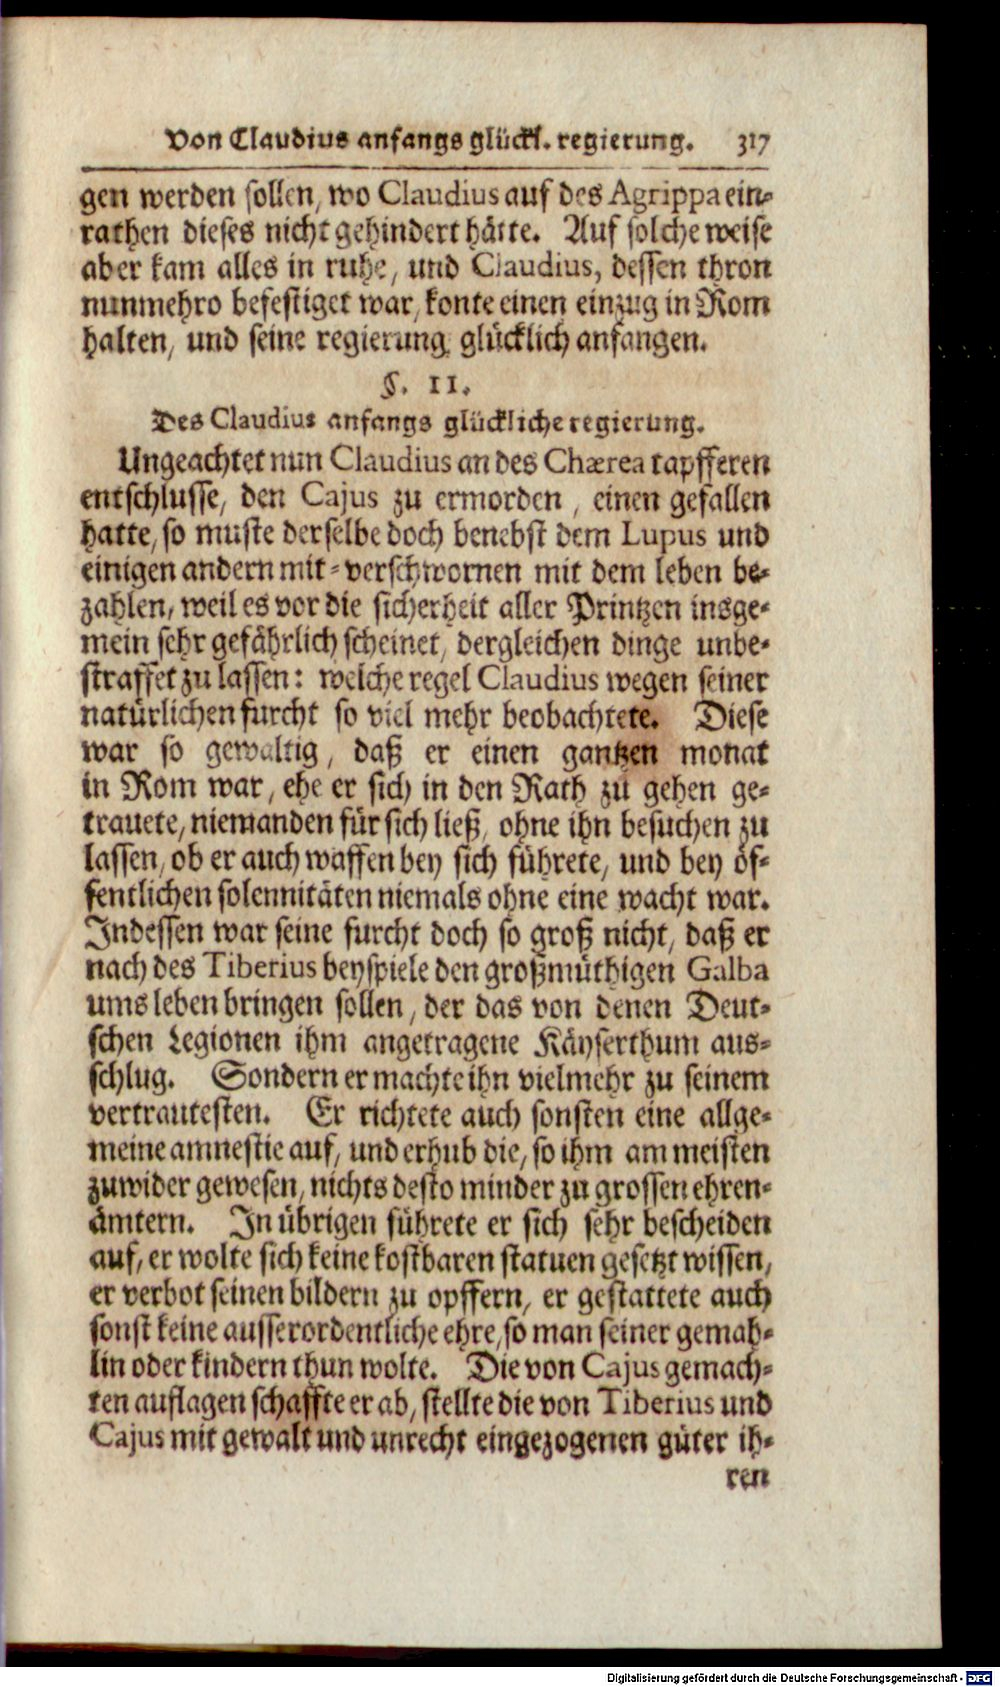 Von Claudius anfangs glückl. regierung. 317
gen werden sollen, wo Claudius auf des Agrippa ein-
rathen dieses nicht gehindert hätte. Auf solche weise
aber kam alles in ruhe, und Claudius, dessen thron
nunmehro befestiget war, konte einen einzug in Rom
halten, und seine regierung glücklich anfangen.
§. 11.
Des Claudius anfangs glückliche regierung.
Ungeachtet nun Claudius an des Chærea tapfferen
entschlusse, den Cajus zu ermorden, einen gefallen
hatte, so muste derselbe doch benebst dem Lupus und
einigen andern mit-verschwornen mit dem leben be-
zahlen, weil es vor die sicherheit aller Printzen insge-
mein sehr gefährlich scheinet, dergleichen dinge unbe-
straffet zu lassen: welche regel Claudius wegen seiner
natürlichen furcht so viel mehr beobachtete. Diese
war so gewaltig, daß er einen gantzen monat
in Rom war, ehe er sich in den Rath zu gehen ge-
trauete, niemanden für sich ließ, ohne ihn besuchen zu
lassen, ob er auch waffen bey sich führete, und bey öf-
fentlichen solennitäten niemals ohne eine wacht war.
Indessen war seine furcht doch so groß nicht, daß er
nach des Tiberius beyspiele den großmüthigen Galba
ums leben bringen sollen, der das von denen Deut-
schen Legionen ihm angetragene Käyserthum aus-
schlug. Sondern er machte ihn vielmehr zu seinem
vertrautesten. Er richtete auch sonsten eine allge-
meine amnestie auf, und erhub die, so ihm am meisten
zuwider gewesen, nichts desto minder zu grossen ehren-
ämtern. In übrigen führete er sich sehr bescheiden
auf, er wolte sich keine kostbaren statuen gesetzt wissen,
er verbot seinen bildern zu opffern, er gestattete auch
sonst keine ausserordentliche ehre, so man seiner gemah-
lin oder kindern thun wolte. Die von Cajus gemach-
ten auflagen schaffte er ab, stellte die von Tiberius und
Cajus mit gewalt und unrecht eingezogenen güter ih-
ren
Digitalisierung gefördert durch die Deutsche Forschungsgemeinschaft - DFG